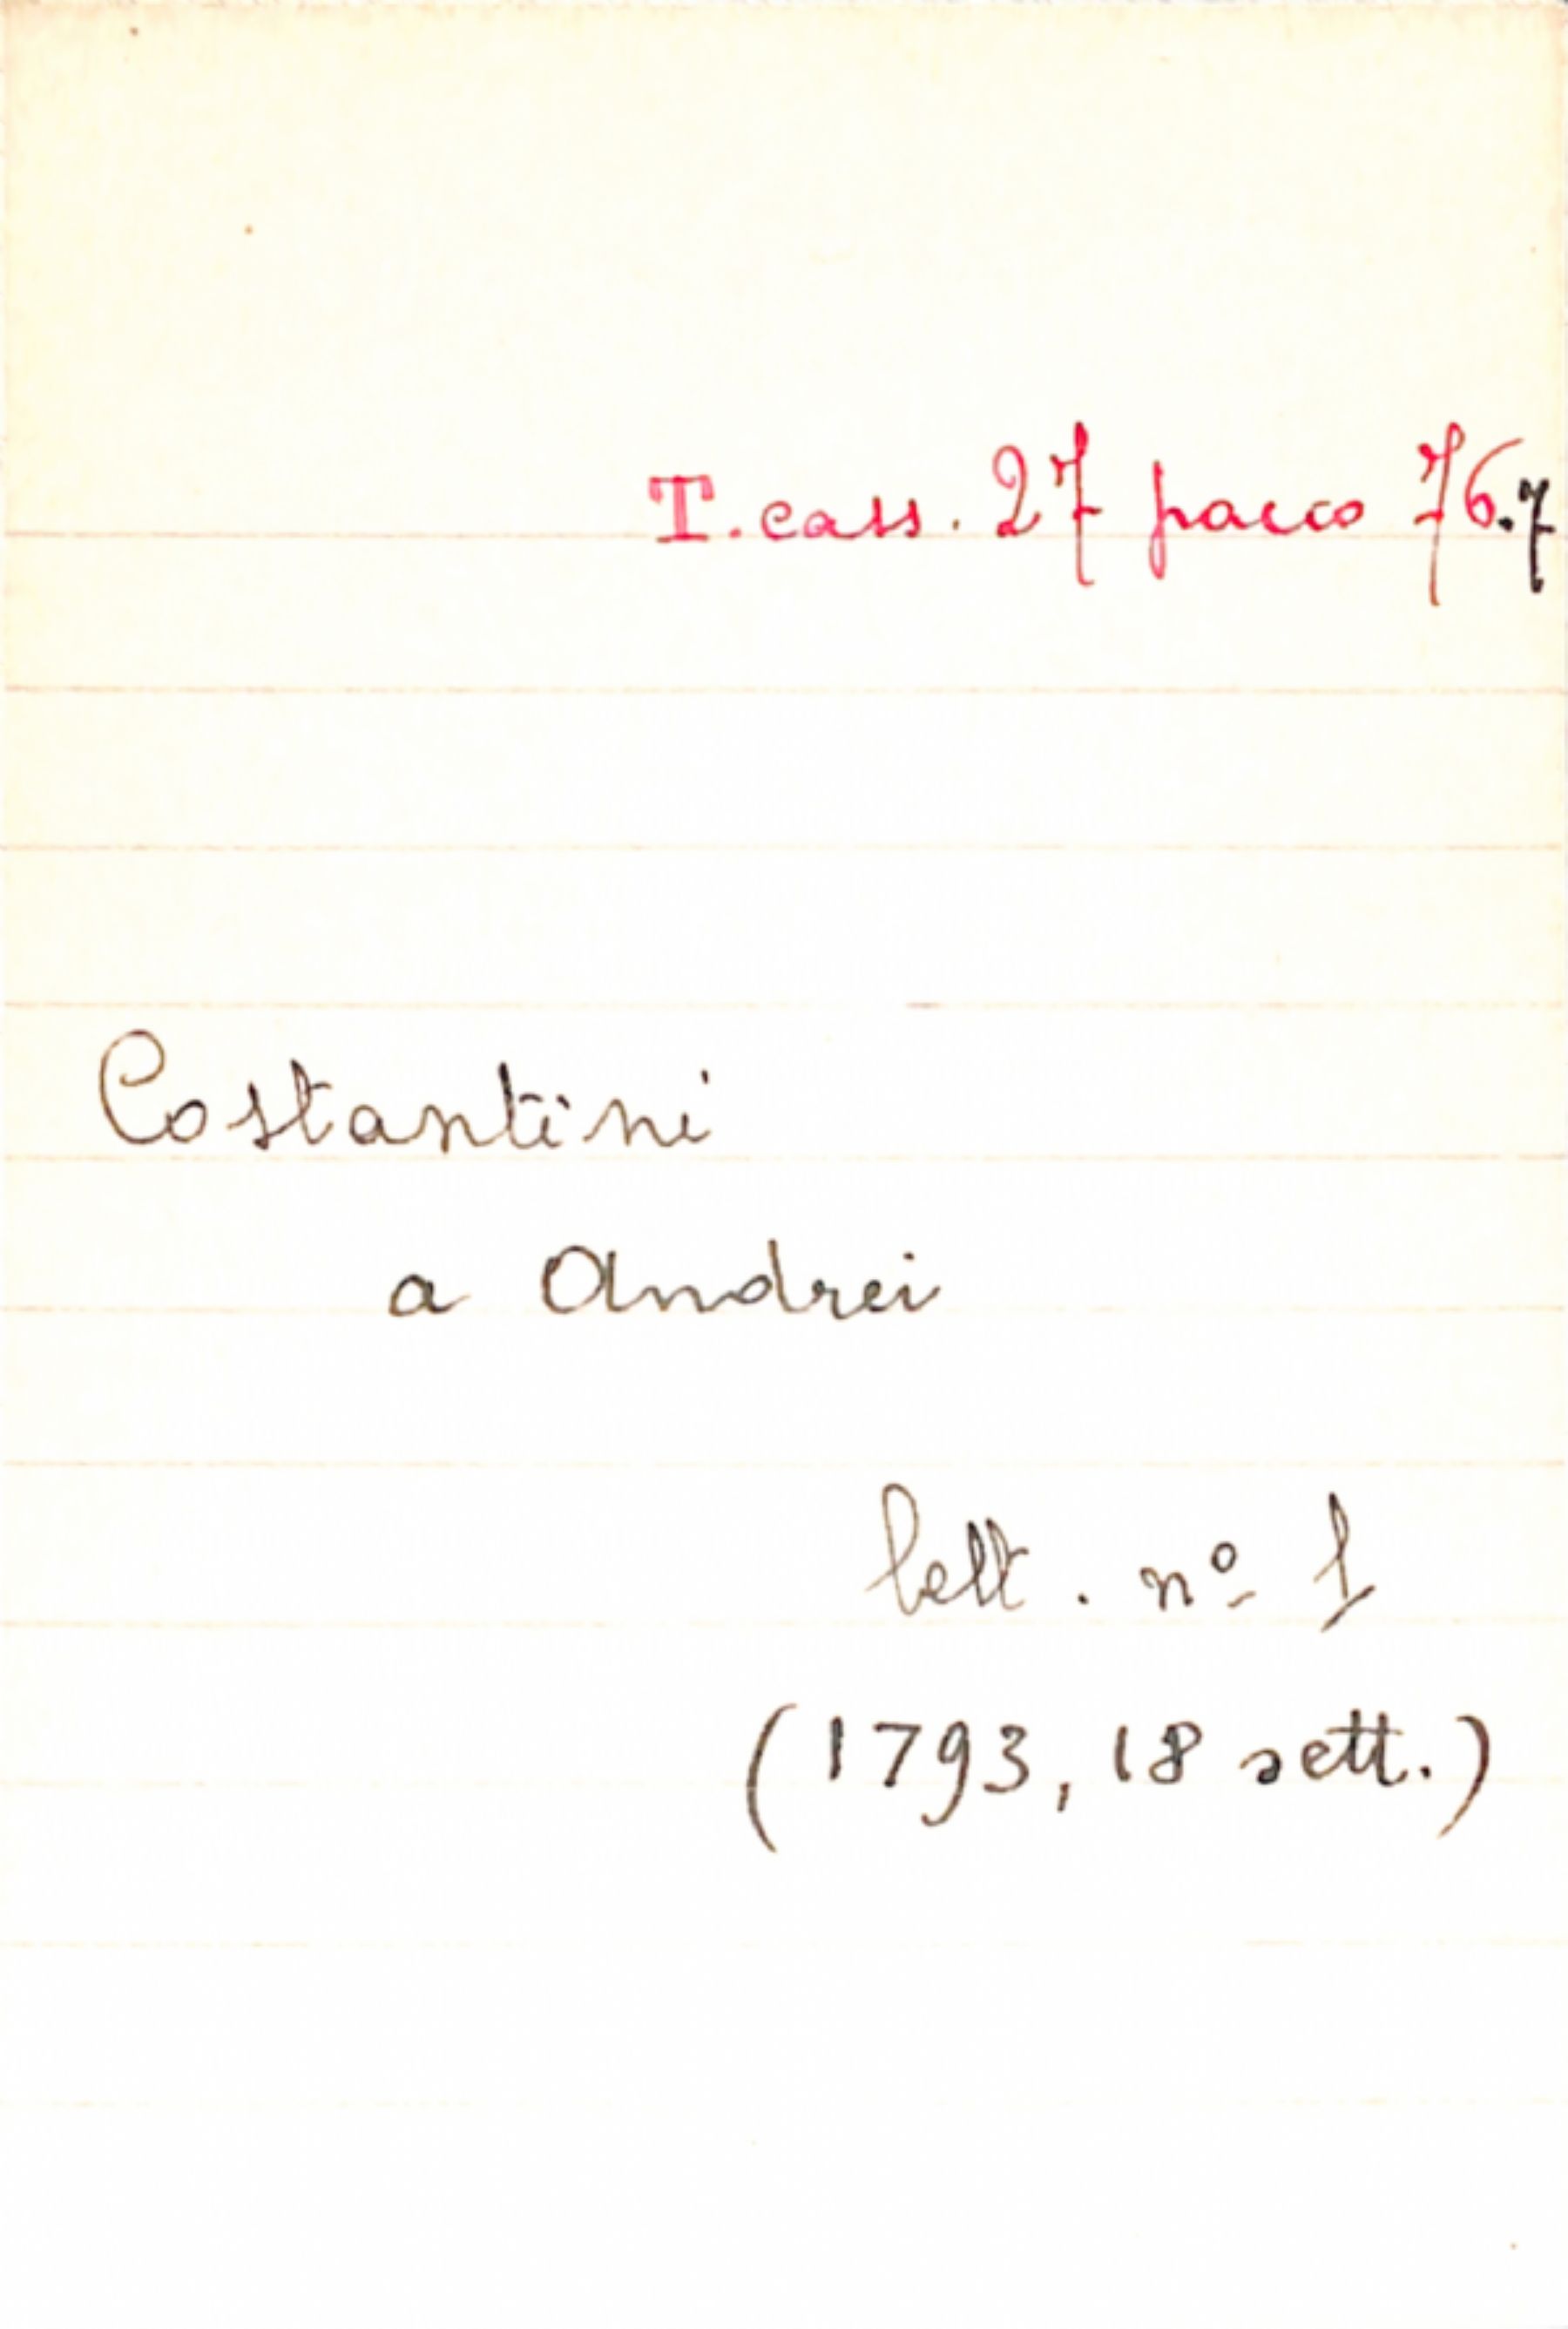 T. cass. 27 pacco 76.7
Costantini
a Andrei
lett. nº 1
(1793, 18 sett.)